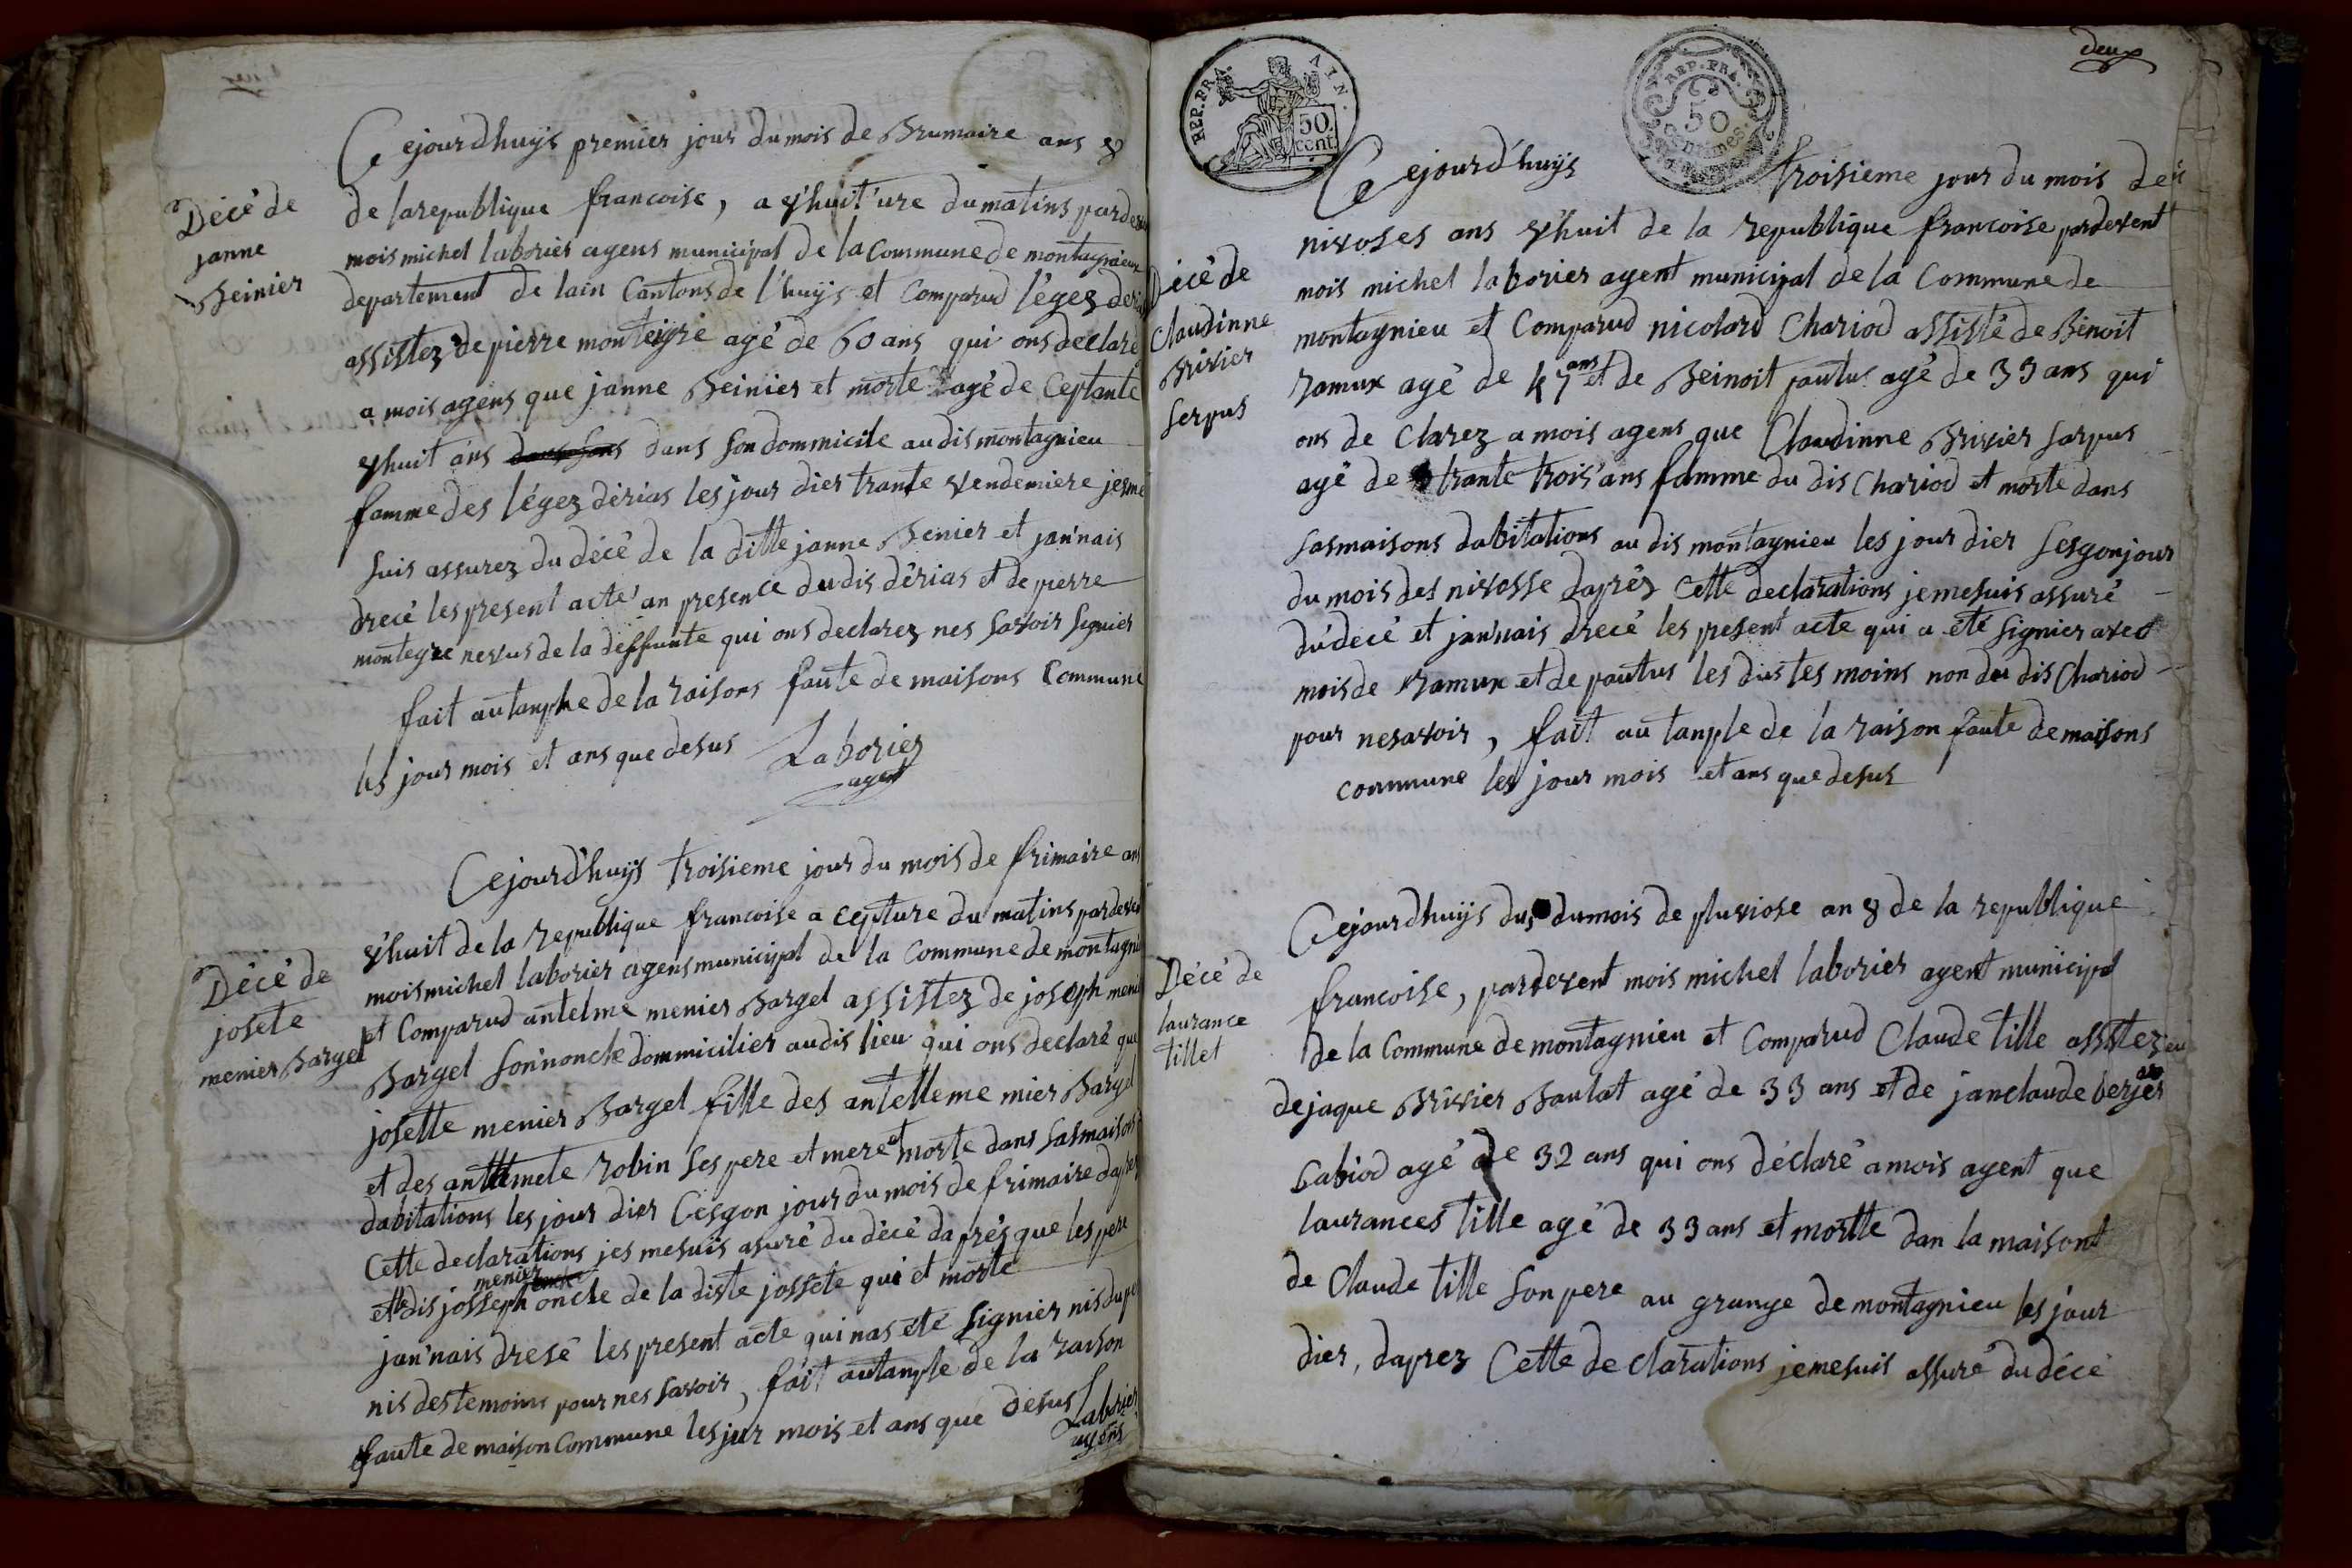 Cejourdhuijs premier jour du mois de Brumaire ans 8
Décé de
janne
Beinier
de la republique francoise, a 8 huit'ure du matins pardev
mois michel laborier agens municipal de la Commune de montagnieux
departement de lain Cantons de l'huijs et Comparud l'égez deri
assistez de pierre monteigre agé de 60 ans qui ons declaré
a mois agens que janne Beinier et morte agé de Ceptante
8huit ans dans sons dans son dommicile au dis montagnieu
famme des légez dérias les jour dier trante vendemiere jesme
suis assurez du décé de la ditte janne Benier et jan'nais
drecé les present acte' an presence du dis dérias et de pierre
montegre nevus de la deffunte qui ons declarez nes savoir signier
fait au tanphe de la raisons faute de maisons Commune
les jour mois et ans que desus
Laborier
agent
Cejourd'huijs troisieme jour du mois de frimaire ans
8huit de la republique francoise a cepture du matins pardev
Décé de
josete
menier Bargel
mois michel laborier agens municipal de la Commune de montagni
et Comparud antelme menier Bargel assistez de joseph meni
Bargel son'noncle dommicilier au dis lieu qui ons declaré que
josette menier Bargel fille des antelleme mier Bargel
et des anttemete robin ses pere et mere et morte dans sasmaisons
dabitations les jour dier Cesgon jour du mois de frimaire dapres
Cette declarations jes mesuis asuré du décé daprés que les pere
et dis josseph menier oncle de la diste jossete qui et morte
jan'nais dresé les present acte qui nas eté signier nis du pe
nis des temoins pour nes savoir, fait au tanple de la raison
faute de maison Commune les jur mois et ans que desus
Laborier
agens
REP. FRA. AIN.
50
cent.
REP. FRA.
50
centimes
deux
Cejourd'huijs troisieme jour du mois de
nivoses ans 8huit de la republique francoise pardevent
Décé de
Claudinne
Brivier
serpus
mois michel laborier agent municipal de la Commune de
montagnieu et Comparud nicolard Chariod assisté de Benoit
ramux agé de 47 ans et de Beinoit pautus agé de 33 ans qui
ons de Clarez a mois agens que Claudinne Brivier sarpus
agé de trante trois'ans famme du dis Chariod et morte dans
sasmaisons dabitations au dis montagnieu les jour dier sesgonjour
du mois des nivosse daprés Cette declarations jemesuis assuré
du'decé et jan'nais drecé les present acte qui a eté signier aved
mois de ramux et de pautus les dus tes moins non du dis Chariod
pour nesavoir, fait au tanple de la raison faute demaisons
commune les jour mois et ans que desus
Cejourdhuijs dus du mois de pluviose an 8 de la republique
Décé de
laurance
tillet
francoise, pardevent mois michel laborier agent municipal
de la Commune de montagnieu et Comparud Claude tille assitez
dejaque Brivier Baulat agé de 33 ans et de janclaude berjer
Cabiod agé de 32 ans qui ons déclaré amois agent que
laurances tille agé de 33 ans et mortte dan la maisont
de Claude tille son pere au grange de montagnieu les jour
dier, daprez Cette declarations jemesuis assuré du décé